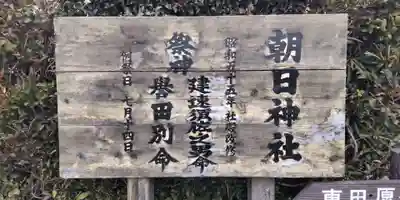 朝日神社
昭和五十五年 社殿改修
祭神
建速須佐之男命
誉田別命
例祭日 七月十四日
東田原